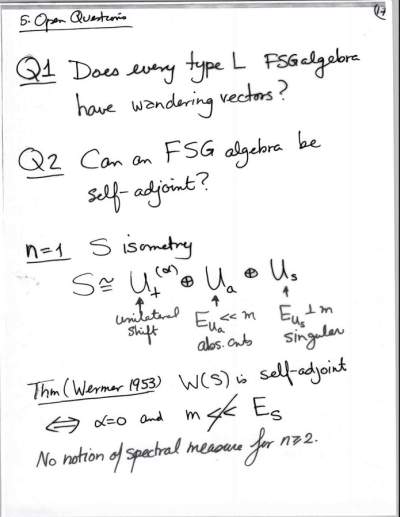 17
5. Open Questions
Q1 Does every type L FSG algebra
have wandering vectors?
Q2 Can an FSG algebra be
self-adjoint?
n=1 S isometry
S ≅ U₊^(α) ⊕ U_a ⊕ U_s
↑ ↑ ↑
unilateral shift E_{U_a} << m abs. cnts E_{U_s} ⊥ m singular
Thm (Wermer 1953) W(S) is self-adjoint
⟺ α=0 and m ≪̸ E_S
No notion of spectral measure for n≥2.